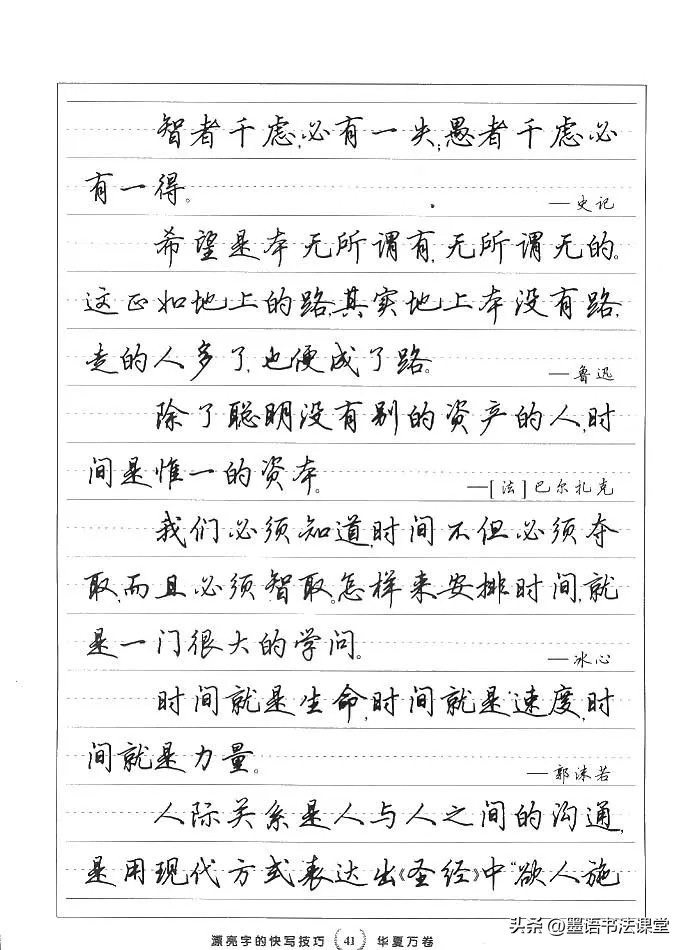 智者千虑,必有一失;愚者千虑必
有一得。
—史记
希望是本无所谓有,无所谓无的。
这正如地上的路,其实地上本没有路,
走的人多了,也便成了路。
—鲁迅
除了聪明没有别的资产的人,时
间是惟一的资本。
—[法]巴尔扎克
我们必须知道,时间不但必须夺
取,而且必须智取。怎样来安排时间,就
是一门很大的学问。
—冰心
时间就是生命,时间就是速度,时
间就是力量。
—郭沫若
人际关系是人与人之间的沟通,
是用现代方式表达出《圣经》中“欲人施
漂亮字的快写技巧 41 华夏万卷
头条@墨语书法课堂